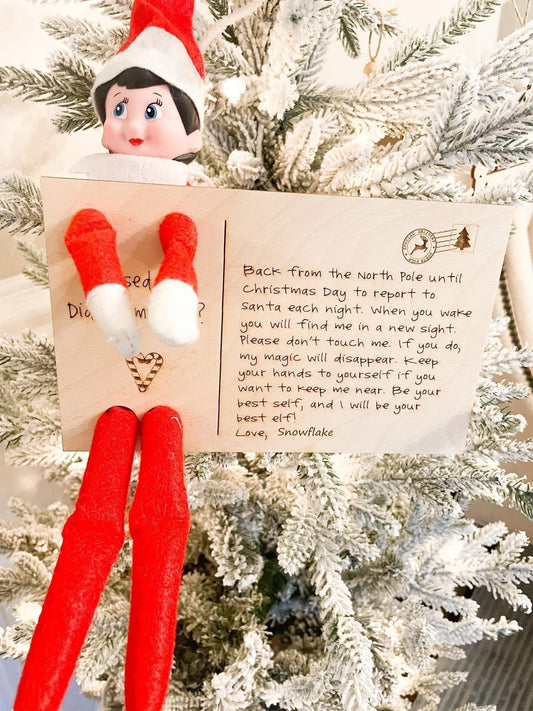 Back from the North Pole until
Christmas Day to report to
Santa each night. When you wake
you will find me in a new sight.
Please don't touch me. If you do,
my magic will disappear. Keep
your hands to yourself if you
want to keep me near. Be your
best self, and I will be your
best elf!
Love, Snowflake